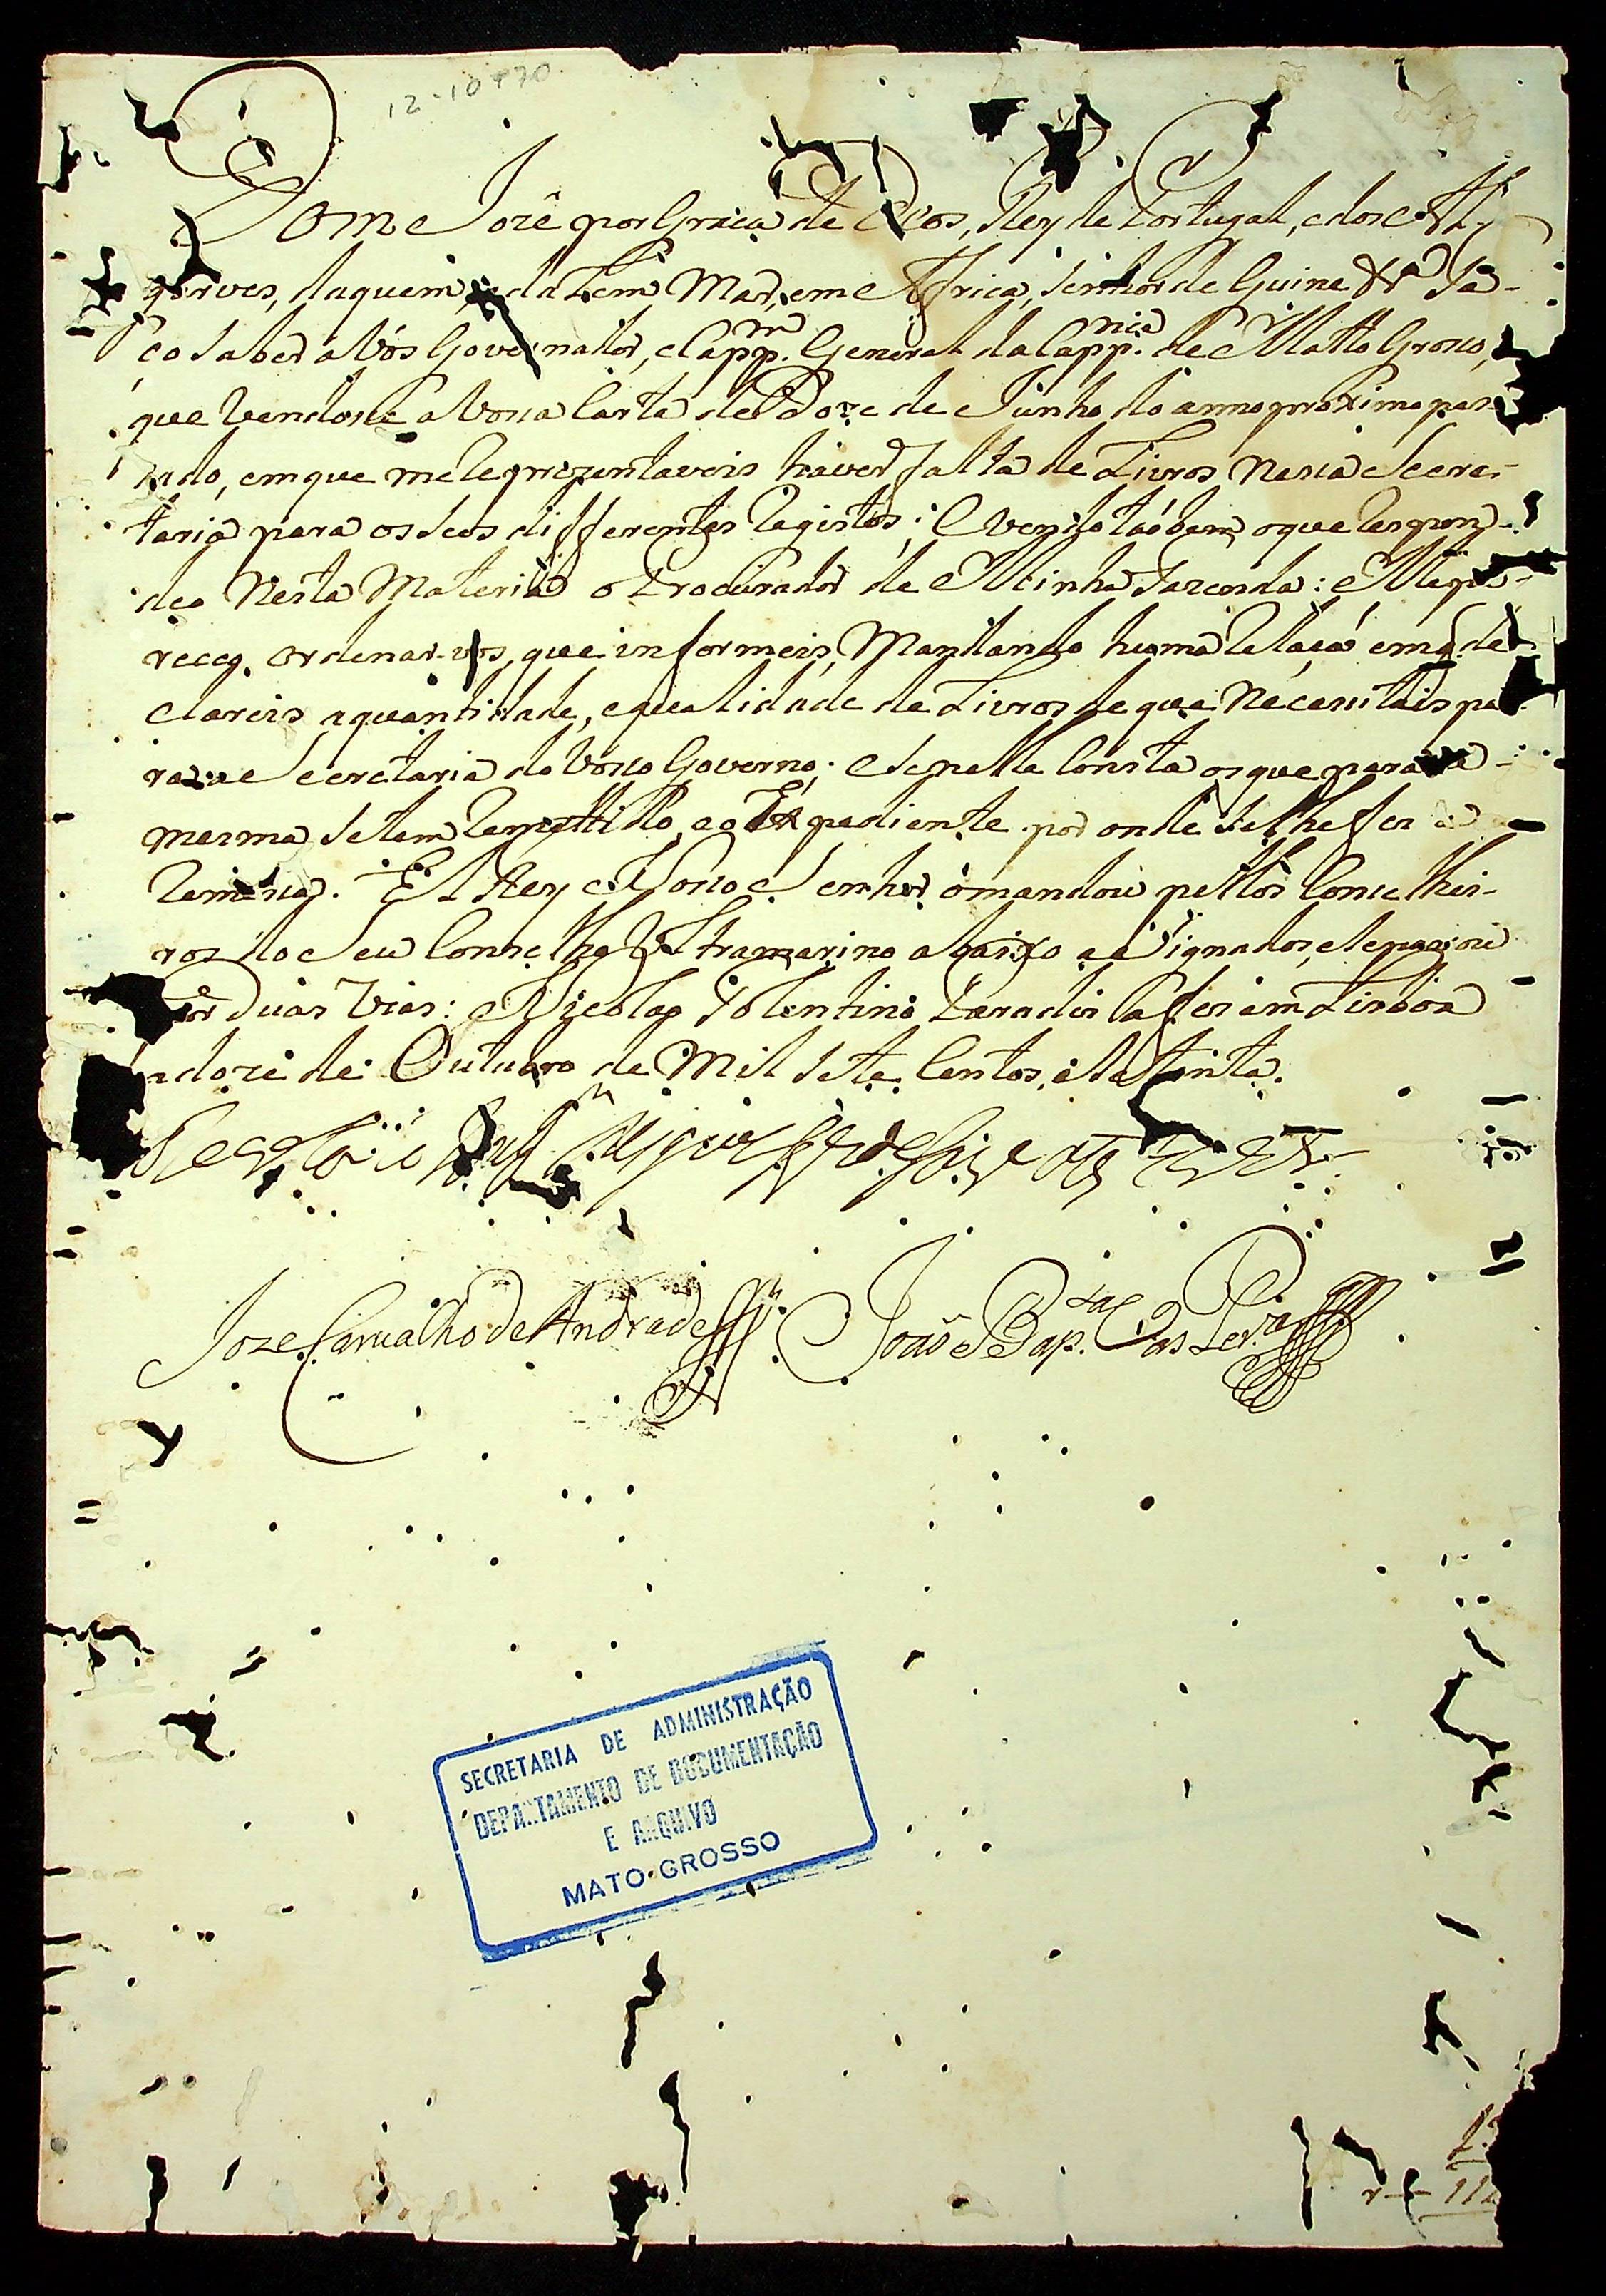 12-10-770
Dom Jozê por Graça de Deos, Rey de Portugal, e dos Al-
garves, daquem, e dalem Mar, em Africa, Senhor de Guine &ª Fa-
ço saber a Vós Governador, e Cappᵐ. General da Cappⁿⁱᵃ. de Matto Grosso,
que vendose a Vossa Carta de Doze de Junho do anno proximo pas-
sado, em que me Reprezentaveis haver falta de Livros Nessa Secre-
taria para os seos differentes Registos; E vendo taóbem o que Respon-
deo Nesta Materia o Procurador de Minha Fazenda: Me pa-
receo ordenar-vos, que informeis, Mandando huma Relaçaó em q. de-
clareis a quantidade, e qualidade de Livros de que Necessitais pa-
ra a Secretaria do Vosso Governo; e se nella Consta os que para a
mesma se tem Remettido, e o Expediente por onde se lhe fez a
Remessa. El Rey Nosso Senhor o mandou pellos Conselhei-
ros do Seu Conselho Ultramarino abaixo asignados, e se passou
por Duas Vias: Nicolao Tolentino Paradis a fes em Lisboa
a doze de Outubro de Mil Sete Centos, e Setenta.
Joze Carvalho de Andrade João Bapᵗᵃ. Vas Perᵃ
SECRETARIA DE ADMINISTRAÇÃO
DEPARTAMENTO DE DOCUMENTAÇÃO
E ARQUIVO
MATO-GROSSO